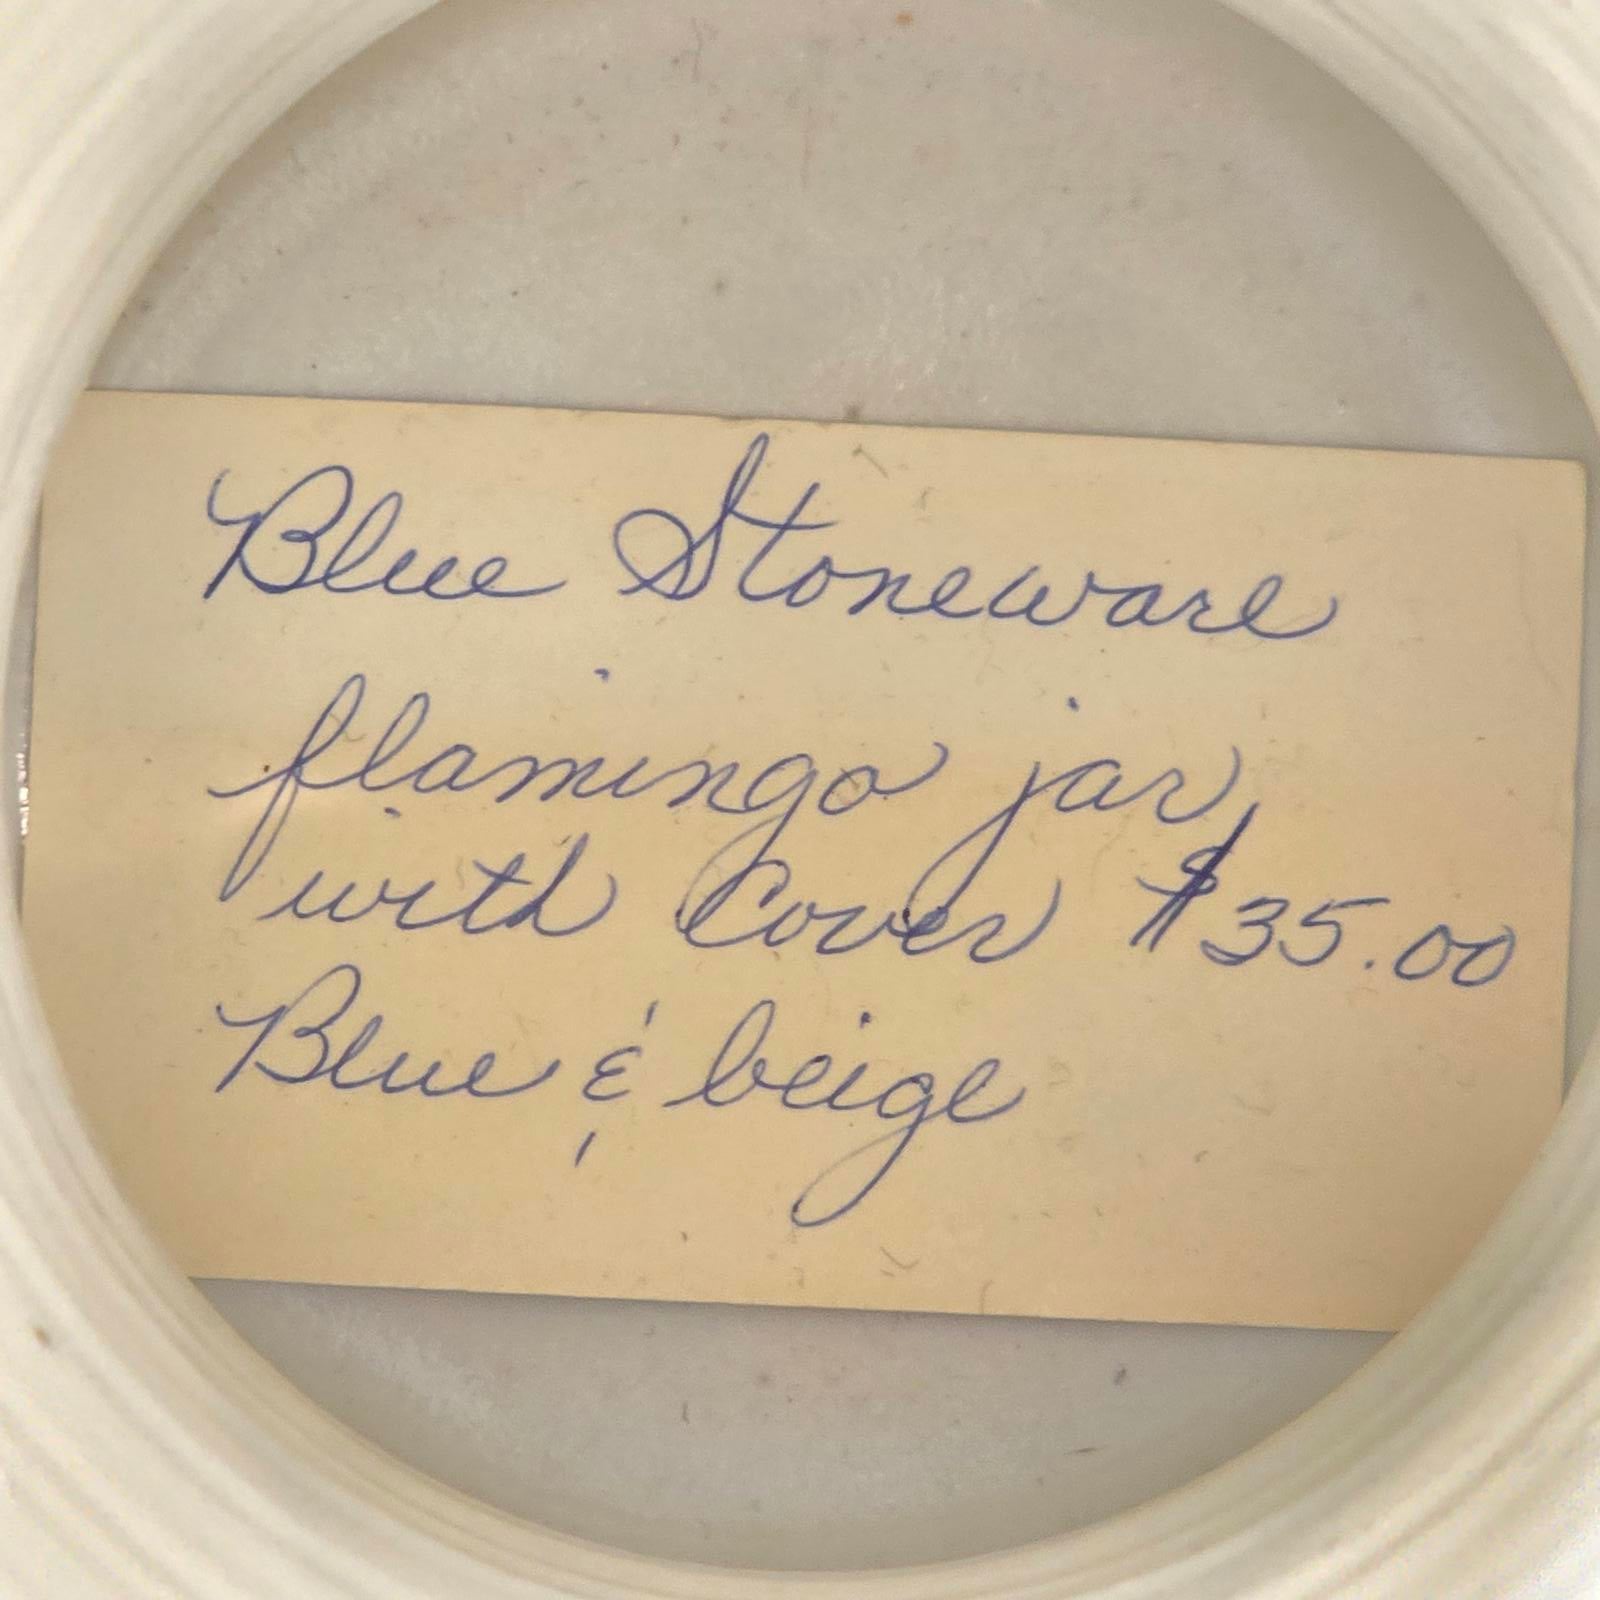 Blue Stoneware
flamingo jar
with Cover $35.00
Blue & beige